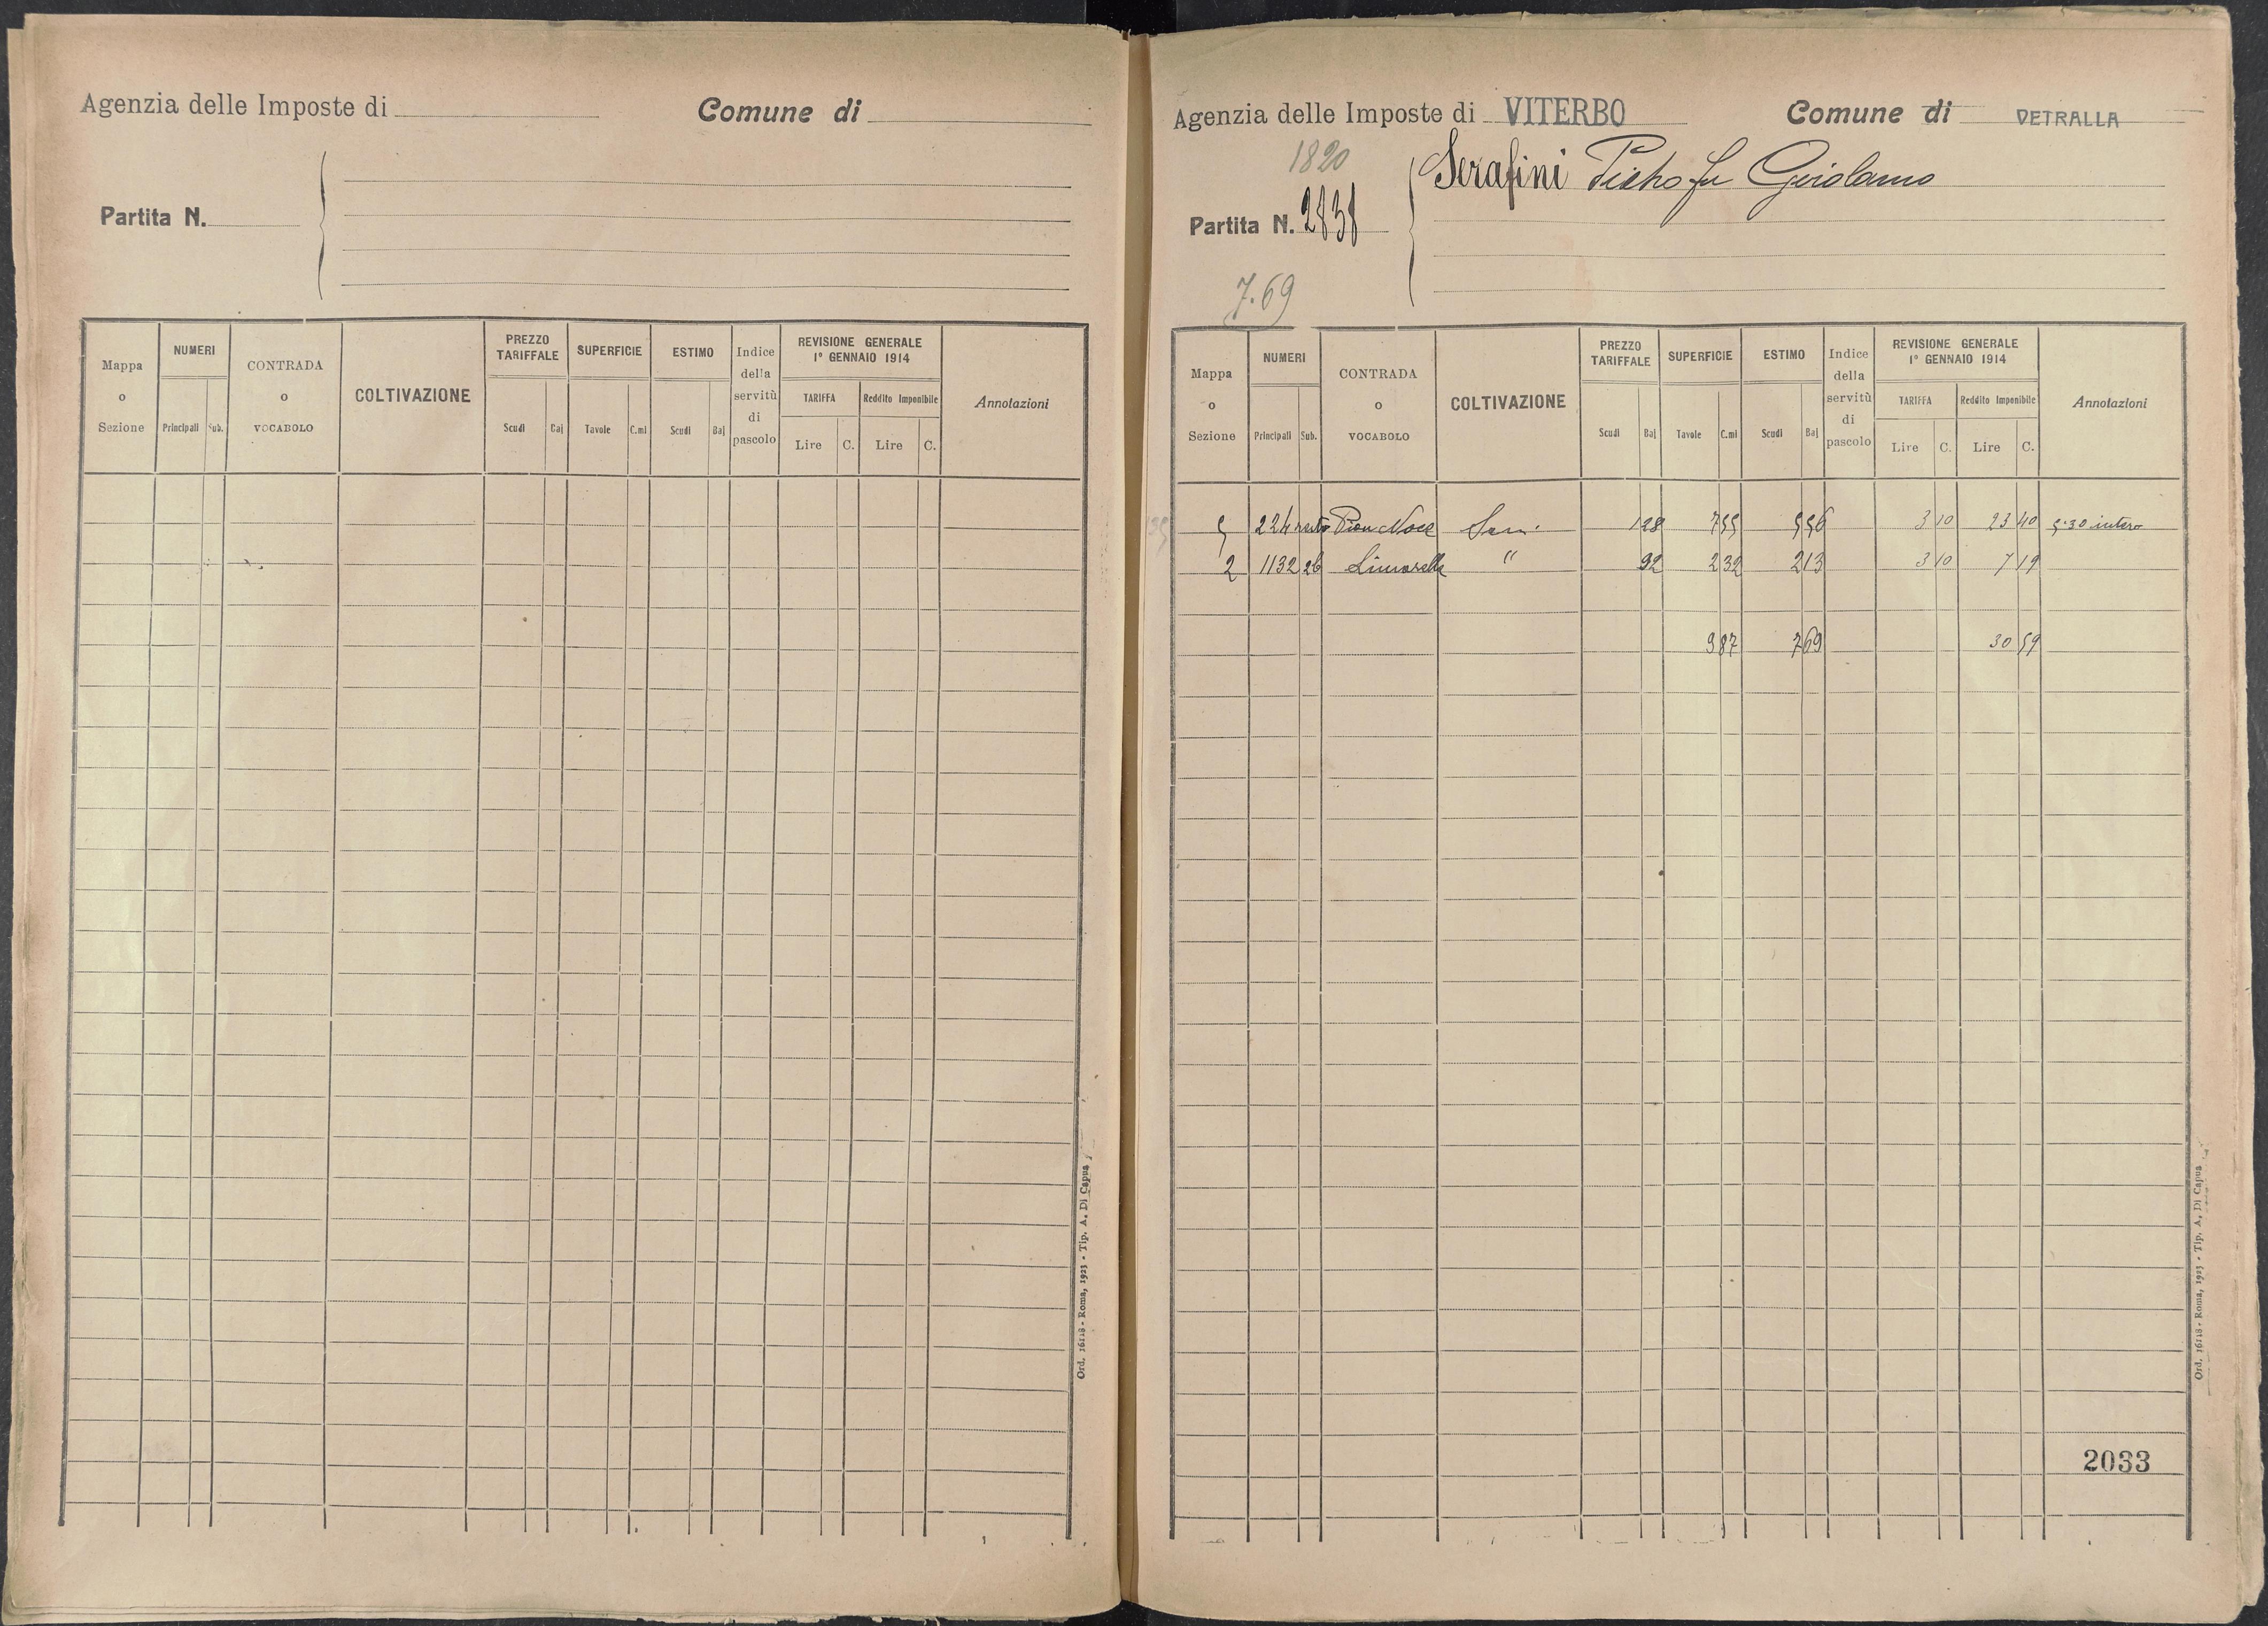 Agenzia delle Imposte di
Comune di
Partita N.
Mappa o Sezione
NUMERI
Principali
Sub.
CONTRADA o VOCABOLO
COLTIVAZIONE
PREZZO TARIFFALE
Scudi
Baj
SUPERFICIE
Tavole
C.mi
ESTIMO
Scudi
Baj
Indice della servitù di pascolo
REVISIONE GENERALE
1° GENNAIO 1914
TARIFFA
Reddito Imponibile
Lire
C.
Lire
C.
Annotazioni
Ord. 16118 - Roma, 1923 - Tip. A. Di Capua
Agenzia delle Imposte di VITERBO
Comune di VETRALLA
1820
Serafini Pietro fu Girolamo
Partita N. 2838
7.69
Mappa o Sezione
NUMERI
Principali
Sub.
CONTRADA o VOCABOLO
COLTIVAZIONE
PREZZO TARIFFALE
Scudi
Baj
SUPERFICIE
Tavole
C.mi
ESTIMO
Scudi
Baj
Indice della servitù di pascolo
REVISIONE GENERALE
1° GENNAIO 1914
TARIFFA
Reddito Imponibile
Lire
C.
Lire
C.
Annotazioni
5 224 Noce Sem. 128 7 55 5 56 3 10 23 40 5.30 intero
2 1132 26 " 92 2 32 2 13 3 10 7 19
9 87 7 69 30 59
2033
Ord. 16118 - Roma, 1923 - Tip. A. Di Capua